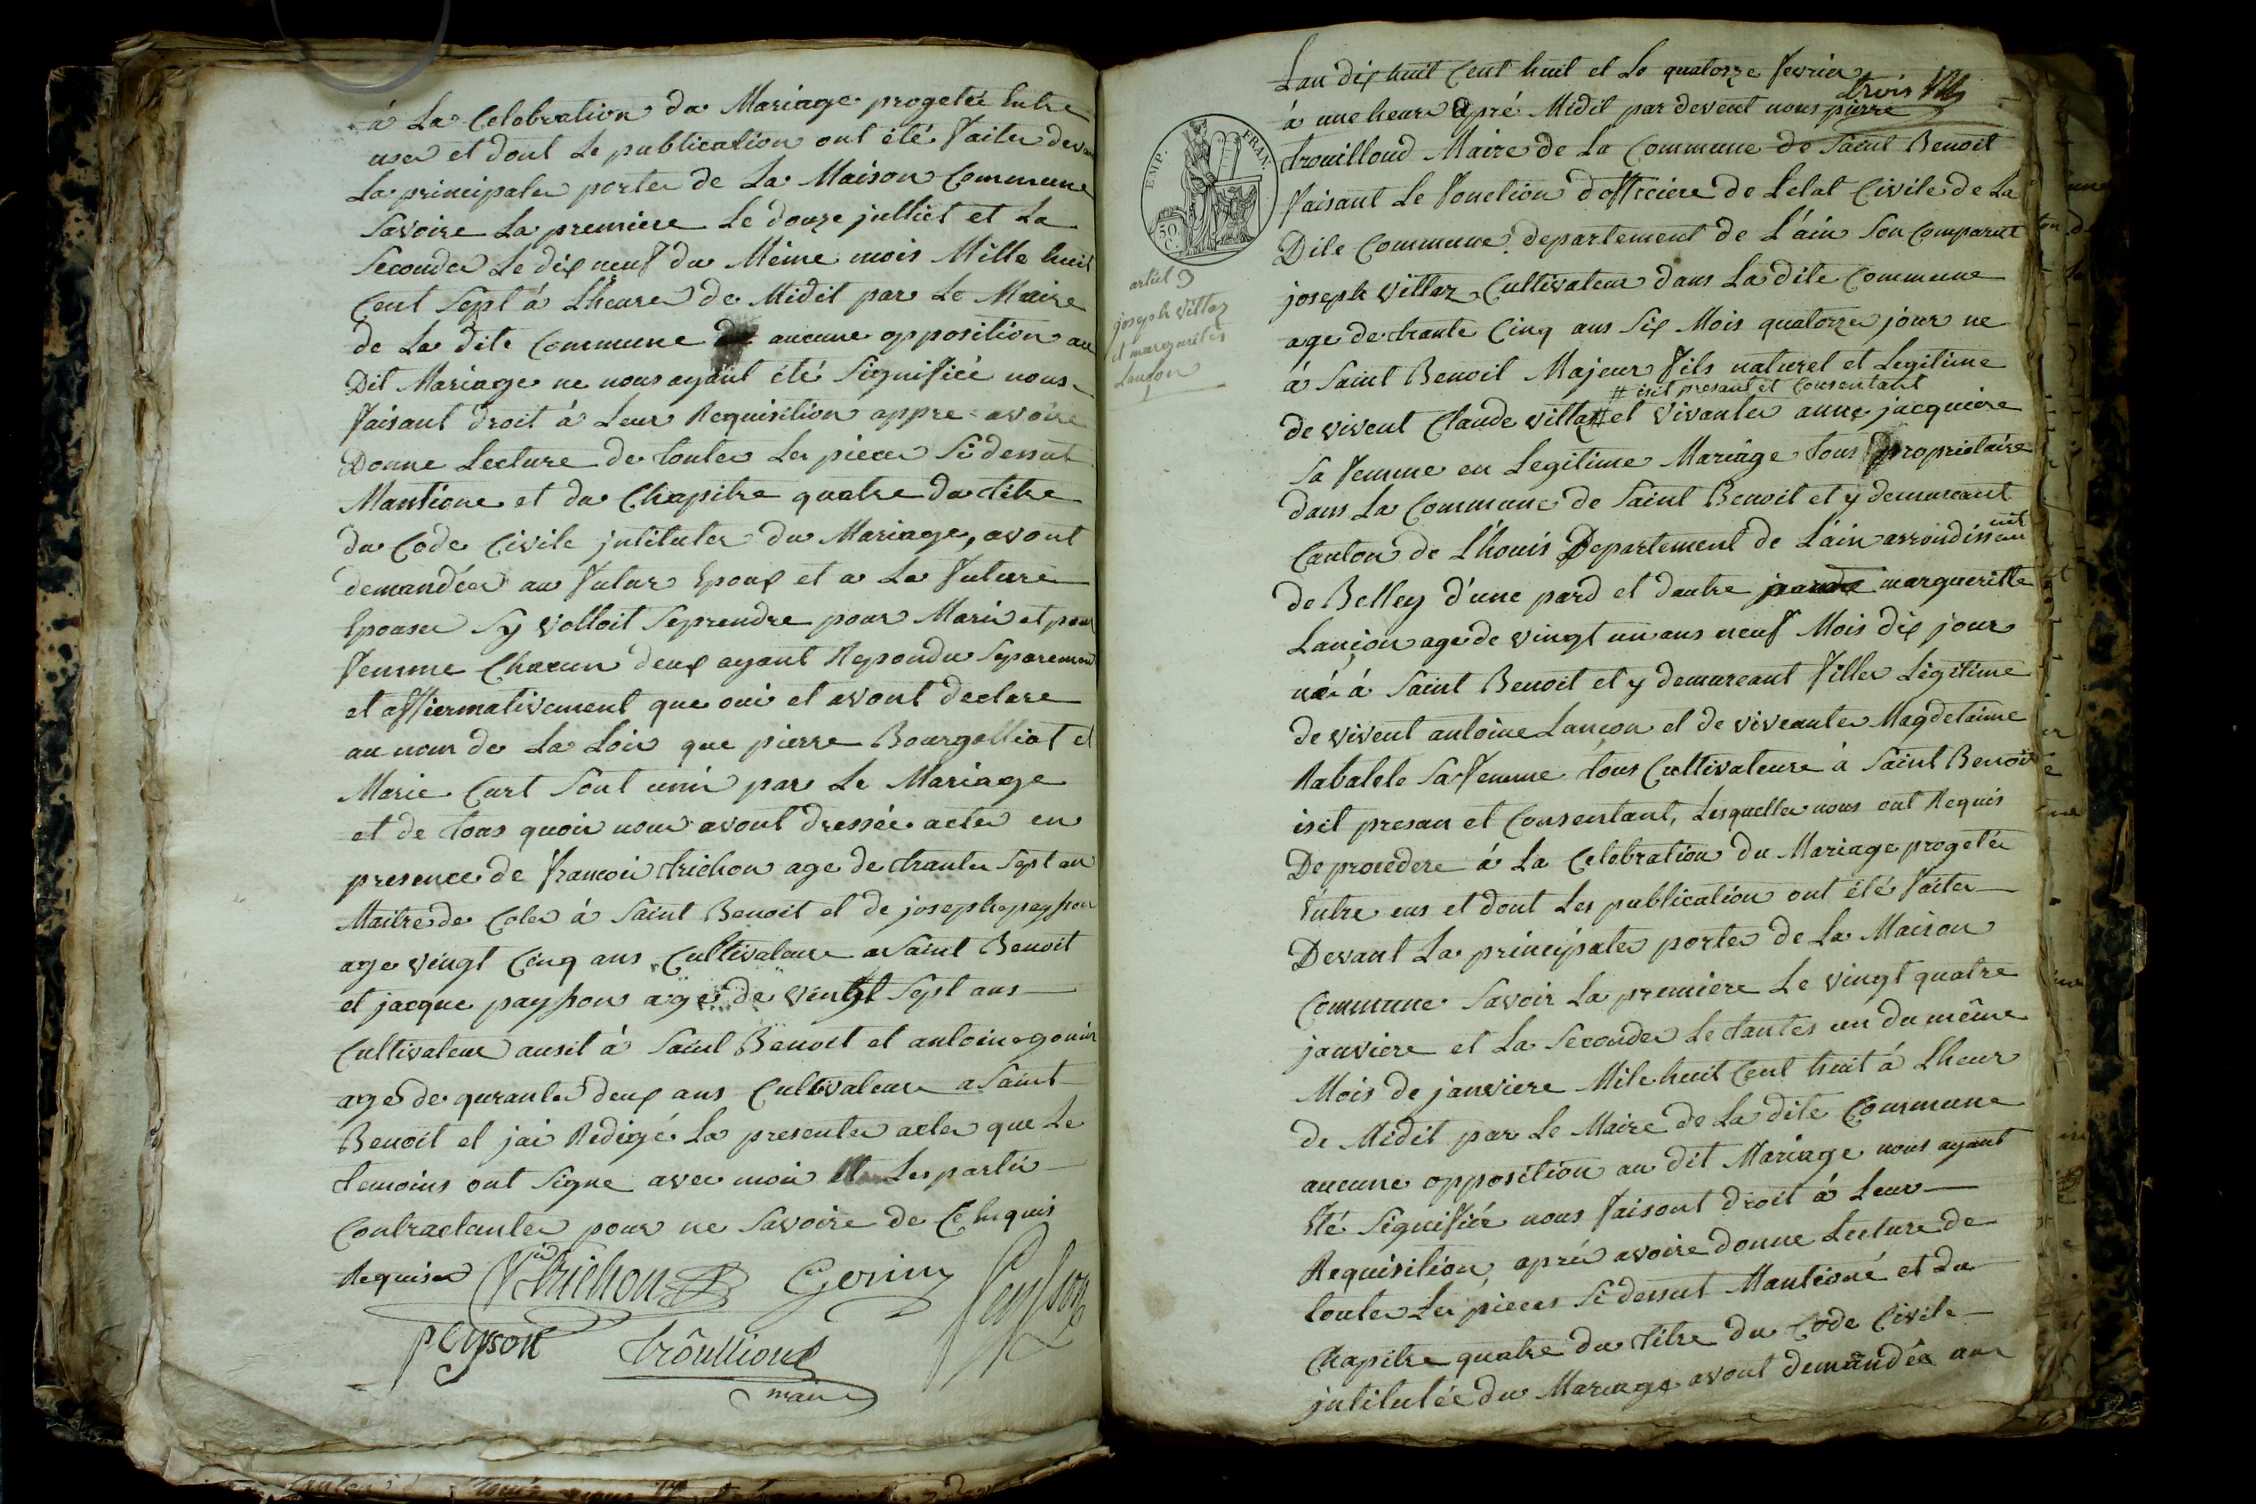 à La Celebration du Mariage progetée Entre
eux et dont Le publication ont été faiter devan
La principaler porter de La Maison Commune
Savoire La premiere Le douze julliet et La
Seconder Le dix neuf du Même mois Mille huit
Cent Sept à Lheure de Midit par Le Maire
de La dite Commune aucune opposition au
Dit Mariage ne nous ayant été Signifiéé nous
faisant droit à Leur Requisition appre avoire
Donne Lecture de touter Les piecer Si dessut
Mantione et du Chapitre quatre du titre
du Code Civile jntituler du Mariage, avont
demandéer au futur Epoux et a La future
Epouser Sy volloit Seprendre pour Marie et pour
femme Chacun deux ayant Repondu Separement
et affiermativement que oui et avont declare
au nom de La Loir que pierre Bourgelliat et
Marie Curt Sont unir par Le Mariage
et de tous quoir nous avont dressée acter en
presence de francoir trichon age de tranter Sept an
Maitre de Coler à Saint Benoit et de joseph peysson
age vingt Cinq ans Cultivateure a Saint Benoit
et jacque paysson age de vingt Sept ans
Cultivateur ausit à Saint Benoit et antoine gonin
age de quranter deux ans Cultivateur a Saint
Benoit et jai Redigé La presenter acter que Le
temoins ont Signe avec moir Les partir
Contractanter pour ne Savoire de Ce Enquis
Requiser trichon Gonin Peysson
peyson trôullioud
maire
Lan dix huit Cent huit et Le quatorze fevrier
trois
à une heure apré Midit par devent nous pierre
trouilloud Maire de La Commune de Saint Benoit
faisant Le fonction dofficiere de Letat Civile de La
Dite Commune departement de L'ain Son Comparut
joseph villaz Cultivateur dans La dite Commune
age de trante Cinq ans Six Mois quatorze jour ne
à Saint Benoit Majeur fils naturel et Legitime
# isit presant et Consentant
de vivent Claude villaz # et vivanter anne jacquiere
Sa femme en Legitime Mariage tous propriotaire
dans La Commune de Saint Benoit et y demureant
Canton de Lhouis Departement de L'ain arrondissement
de Belley d'une pard et dautre margueritte
Lançon age de vingt un ans neuf Mois dix jour
née à Saint Benoit et y demureant filler Legitime
de vivent antoine Lançon et de viveanter Magdelaine
Rabatele Sa femme tous Cultivateure à Saint Benoit
isit presan et Consentant, Lesqueller nous ont Requis
De procedere à La Celebration du Mariage progetée
Entre eus et dont Les publication ont été faiter
Devant La principaler porter de La Maison
Commune Savoir La premiere Le vingt quatre
janviere et La Seconder Le tantes un du même
Mois de janviere Mile huit Cent huit à Lheur
de Midit par Le Maire de La dite Commune
aucune opposition au dit Mariage nous ayant
Été Signifiér nous faisont droit à Leur
Requisition, apréz avoire donne Lecture de
touter Les pieces Si dessut Mantioné et du
Chapitre quatre du titre du Code Civile
jntitulée du Mariage avont demandée au
EMP. FRAN.
50 C.
artiel 3
joseph villaz
et margueriter
Lançon